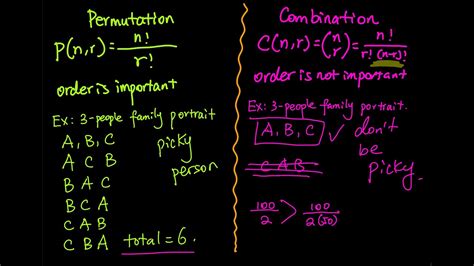 Permutation
P(n,r) = n! / r!
order is important
Ex: 3-people family portrait
A, B, C
A C B
B A C
B C A
C A B
C B A
picky
person
total = 6.
Combination
C(n,r) = (n r) = n! / r! (n-r)!
order is not important
Ex: 3-people family portrait.
A, B, C ✓ don't
be
picky.
C A B
100/2 > 100/2(50)